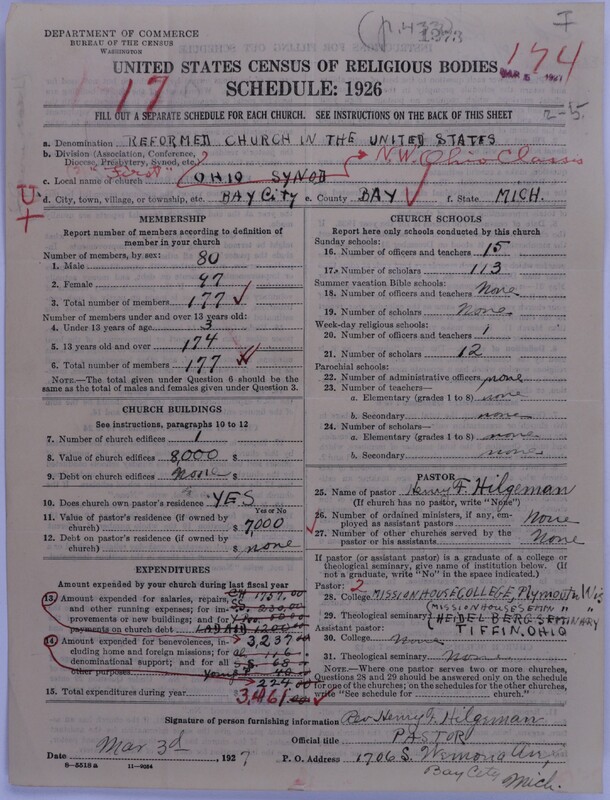 (p.433)
1373
I
DEPARTMENT OF COMMERCE
BUREAU OF THE CENSUS
WASHINGTON
174
MAR 5 1927
UNITED STATES CENSUS OF RELIGIOUS BODIES
17
SCHEDULE: 1926
FILL OUT A SEPARATE SCHEDULE FOR EACH CHURCH. SEE INSTRUCTIONS ON THE BACK OF THIS SHEET
2-5.
a. Denomination REFORMED CHURCH IN THE UNITED STATES
b. Division (Association, Conference, Diocese, Presbytery, Synod, etc.) N.W. Ohio Classis
c. Local name of church "First" OHIO SYNOD
d. City, town, village, or township, etc. BAY CITY e. County BAY f. State MICH.
MEMBERSHIP
Report number of members according to definition of
member in your church
Number of members, by sex:
1. Male 80
2. Female 97
3. Total number of members 177
Number of members under and over 13 years old:
4. Under 13 years of age 3
5. 13 years old and over 174
6. Total number of members 177
NOTE.—The total given under Question 6 should be the
same as the total of males and females given under Question 3.
CHURCH BUILDINGS
See instructions, paragraphs 10 to 12
7. Number of church edifices 1
8. Value of church edifices $ 8,000
9. Debt on church edifices $ None
10. Does church own pastor's residence? YES
Yes or No
11. Value of pastor's residence (if owned by
church) $ 7000
12. Debt on pastor's residence (if owned by
church) $ none
EXPENDITURES
Amount expended by your church during last fiscal year
13. Amount expended for salaries, repairs,
and other running expenses; for im-
provements or new buildings; and for
payments on church debt
3237
14. Amount expended for benevolences, in-
cluding home and foreign missions; for
denominational support; and for all
other purposes
224
15. Total expenditures during year 3,461
CHURCH SCHOOLS
Report here only schools conducted by this church
Sunday schools:
16. Number of officers and teachers 15
17. Number of scholars 113
Summer vacation Bible schools:
18. Number of officers and teachers None
19. Number of scholars None
Week-day religious schools:
20. Number of officers and teachers 1
21. Number of scholars 12
Parochial schools:
22. Number of administrative officers none
23. Number of teachers—
a. Elementary (grades 1 to 8) none
b. Secondary none
24. Number of scholars—
a. Elementary (grades 1 to 8) none
b. Secondary none
PASTOR
25. Name of pastor Henry F. Hilgeman
(If church has no pastor, write "None")
26. Number of ordained ministers, if any, em-
ployed as assistant pastors None
27. Number of other churches served by the
pastor or his assistants None
If pastor (or assistant pastor) is a graduate of a college or
theological seminary, give name of institution below. (If
not a graduate, write "No" in the space indicated.)
Pastor: 2
28. College MISSION HOUSE COLLEGE, Plymouth Wis
29. Theological seminary (MISSION HOUSE SEMIN " "
(HEIDELBERG SEMINARY
Assistant pastor: TIFFIN, OHIO
30. College None
31. Theological seminary None
NOTE.—Where one pastor serves two or more churches,
Questions 28 and 29 should be answered only on the schedule
for one of the churches; on the schedules for the other churches,
write "See schedule for church."
Signature of person furnishing information Rev Henry F. Hilgeman
Official title PASTOR
Date Mar 3d 1927 P. O. Address 1706 S.
Bay City
Mich.
8—5518 a 11—9024